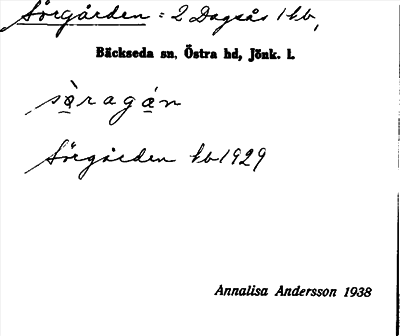 Sörgården = 2 Dagsås 1 kb,
Bäckseda sn, Östra hd, Jönk. l.
sà̱ragá̱n
Sörgården kb 1929
Annalisa Andersson 1938